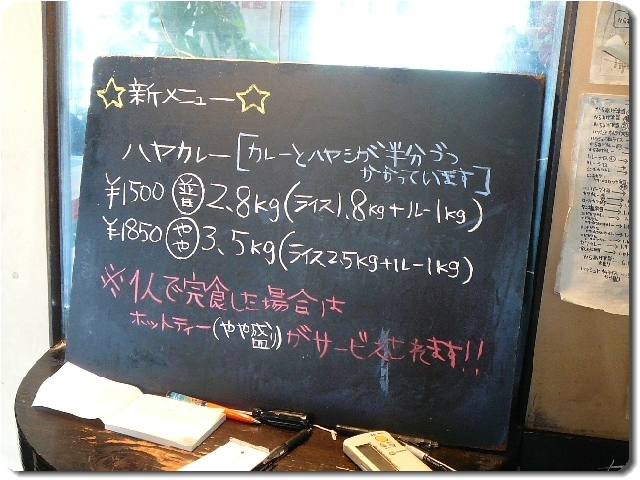 ☆新メニュー☆
ハヤカレー[カレーとハヤシが半分づつ
かかっています]
¥1500 普 2.8kg(ライス1.8kg+ルー1kg)
¥1850 やや 3.5kg(ライス2.5kg+ルー1kg)
※1人で完食した場合は
ホットティー(やや盛り)がサービスされます!!